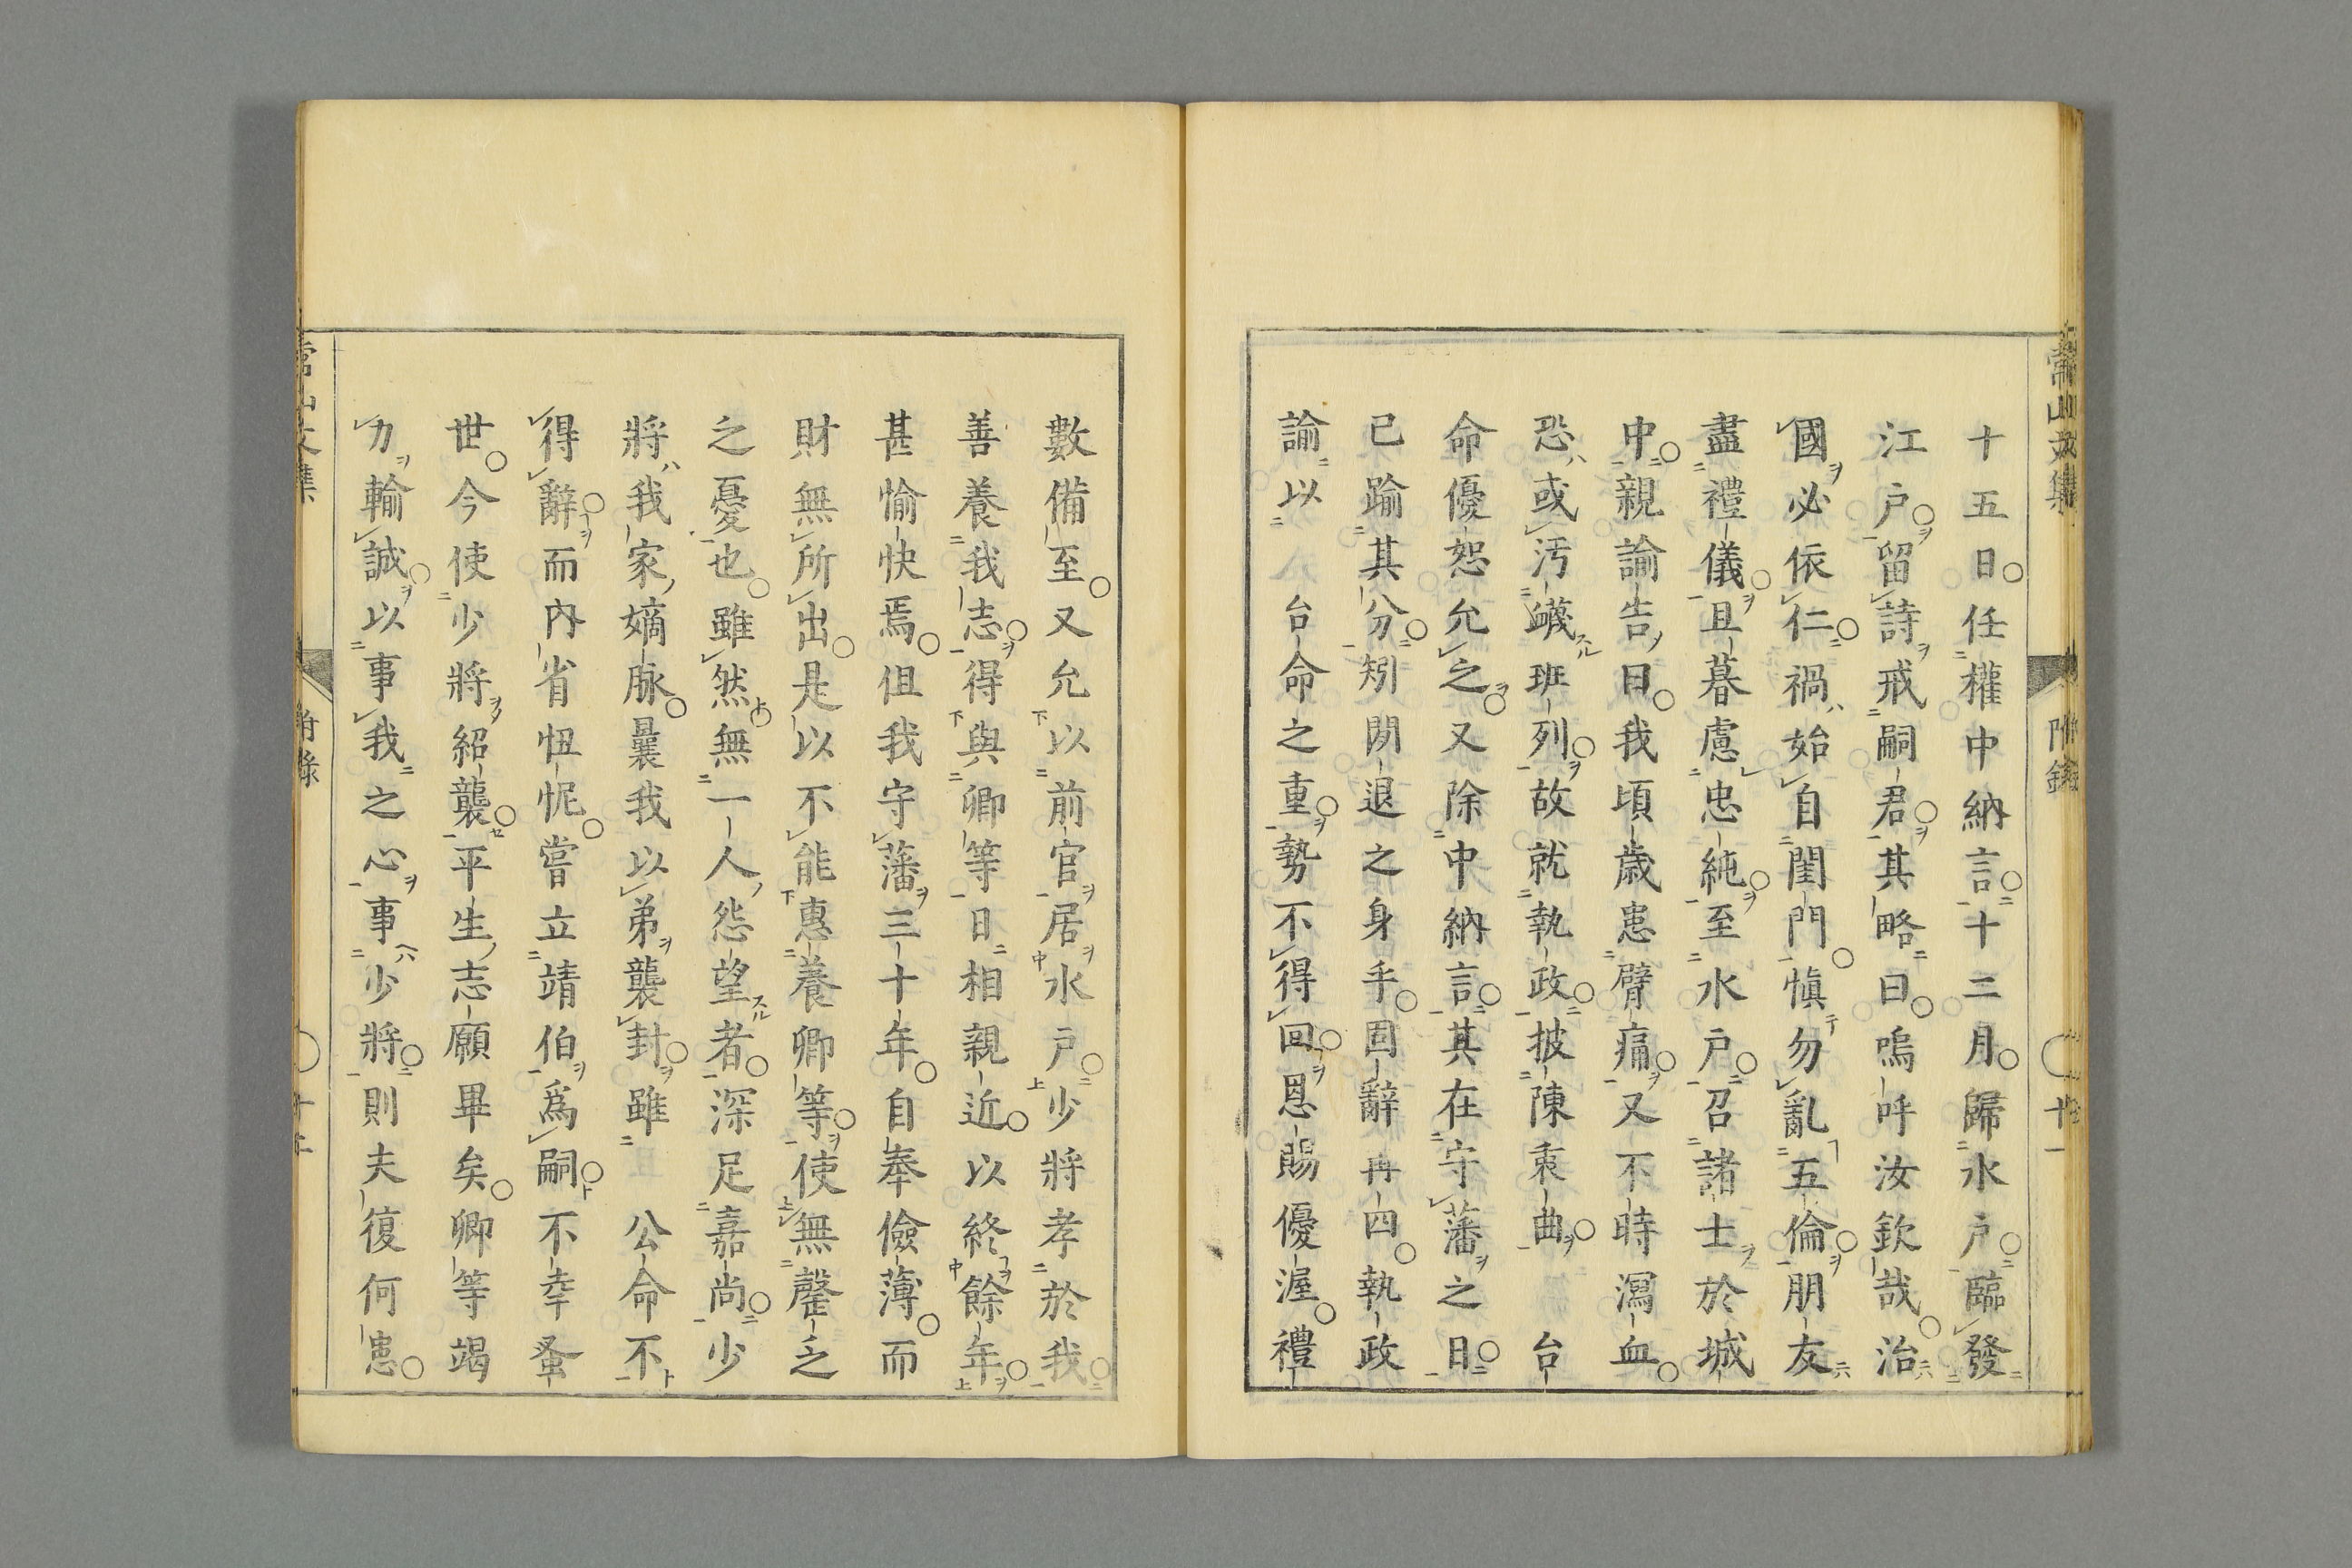 十五日任權中納言十二月歸水戶臨發
江戶留詩戒嗣君其略曰嗚呼汝欽哉治
國必依仁禍始自閨門愼勿亂五倫朋友
盡禮儀且暮慮忠純至水戶召諸士於城
中親諭告曰我頃歲患臂痛又不時瀉血
恐或汚衊班列故就執政披陳衷曲台
命優恕允之又除中納言其在守藩之日
已踰其分矧閒退之身乎固辭再四執政
諭以台命之重勢不得回恩賜優渥禮
數備至又允以前官居水戶少將孝於我
善養我志得與卿等日相親近以終餘年
甚愉快焉但我守藩三十年自奉儉薄而
財無所出是以不能惠養卿等使無罄乏
之憂也雖然無一人怨望者深足嘉尚少
將我家嫡脉曩我以弟襲封雖公命不
得辭而內省忸怩嘗立靖伯爲嗣不幸蚤
世今使少將紹襲平生志願畢矣卿等竭
力輸誠以事我之心事少將則夫復何患
常山文集
附錄
十一